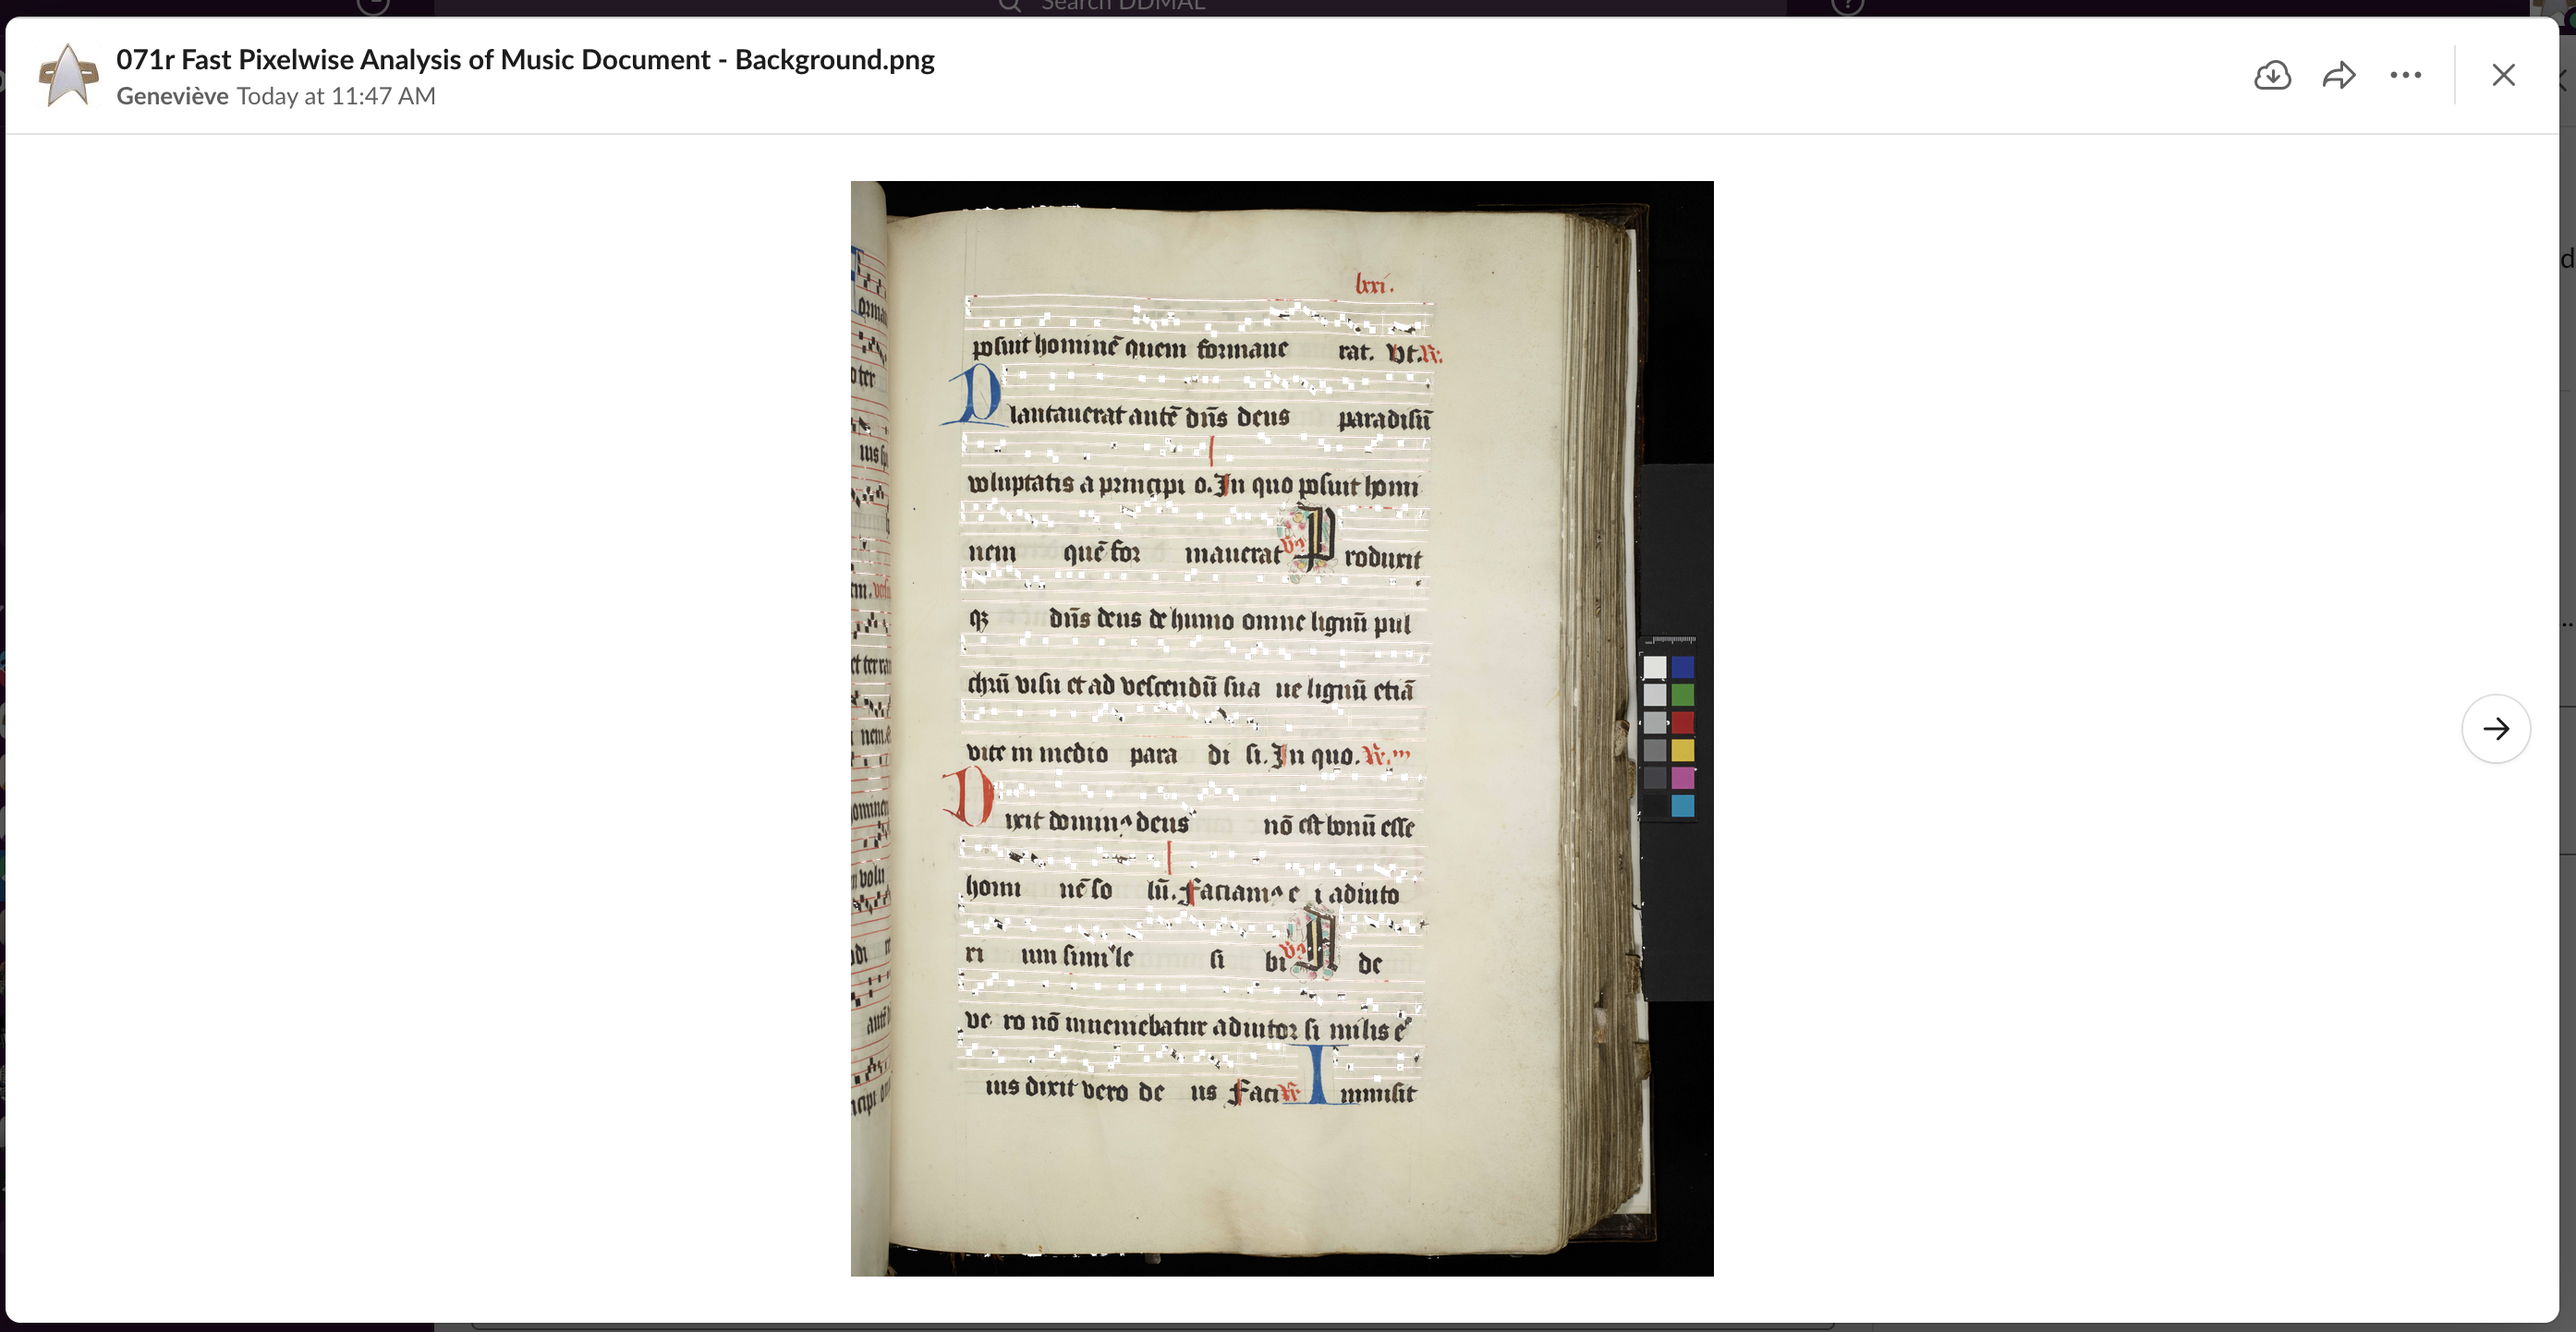 Search DDMAL
071r Fast Pixelwise Analysis of Music Document - Background.png
Geneviève Today at 11:47 AM
lxxi.
posuit hominē quem formaue rat. Vt. R:
P
lantauerat autē dn̄s deus paradisū
voluptatis a principi o. In quo posuit homi
nem quē for mauerat V P roduxit
qꝫ dn̄s deus de humo omne lignū pul
chrū visu et ad vescendū sua ue lignū etiā
vite in medio para di si. In quo. R:
D
ixit domin deus nō est bonū esse
homi nē so lū. Faciam e i adiuto
ri um simile si bi V A de
ve ro nō inueniebatur adiutor si milis e
ius dixit vero de us Faci R I mmisit